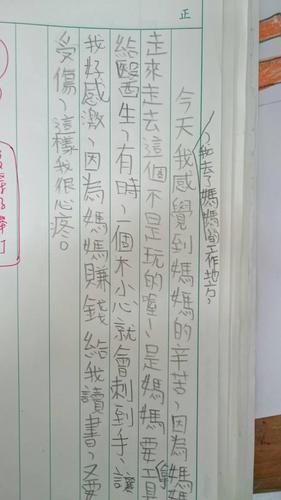 正
我去了媽媽的工作地方,
今天我感覺到媽媽的辛苦,因為媽媽
走來走去這個不是玩的喔!是媽媽要拿工具
給醫生,有時,一個不小心就會刺到手,讓
我好感激,因為媽媽賺錢給我讀書,又要
受傷,這樣我很心疼。